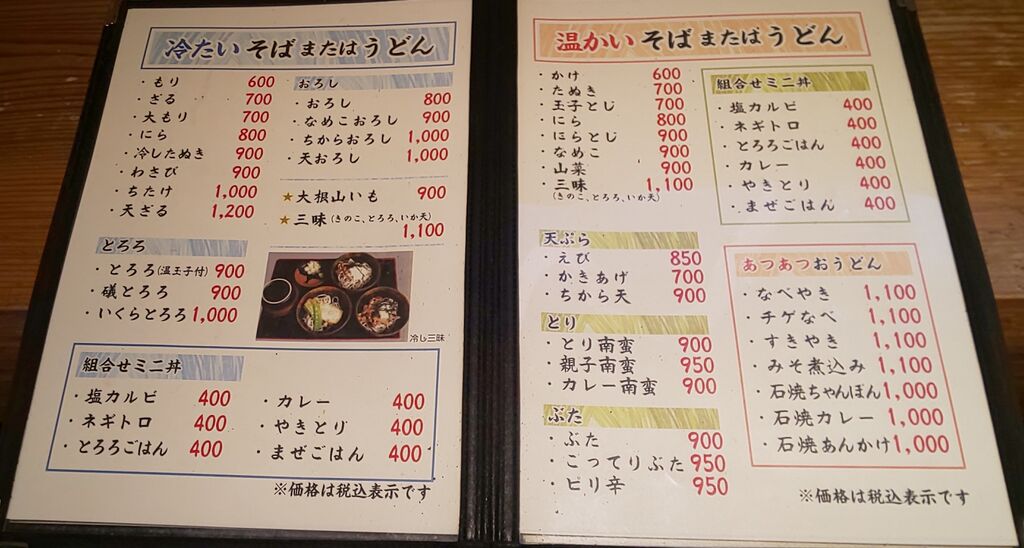 冷たいそばまたはうどん
・もり 600
・ざる 700
・大もり 700
・にら 800
・冷したぬき 900
・わさび 900
・ちたけ 1,000
・天ざる 1,200
とろろ
・とろろ(温玉子付) 900
・磯とろろ 900
・いくらとろろ 1,000
おろし
・おろし 800
・なめこおろし 900
・ちからおろし 1,000
・天おろし 1,000
★大根山いも 900
★三味(きのこ、とろろ、いか天)
1,100
冷し三味
組合せミニ丼
・塩カルビ 400
・ネギトロ 400
・とろろごはん 400
・カレー 400
・やきとり 400
・まぜごはん 400
※価格は税込表示です
温かいそばまたはうどん
・かけ 600
・たぬき 700
・玉子とじ 700
・にら 800
・にらとじ 900
・なめこ 900
・山菜 900
・三味 1,100
(きのこ、とろろ、いか天)
天ぷら
・えび 850
・かきあげ 700
・ちから天 900
とり
・とり南蛮 900
・親子南蛮 950
・カレー南蛮 900
ぶた
・ぶた 900
・こってりぶた 950
・ピリ辛 950
組合せミニ丼
・塩カルビ 400
・ネギトロ 400
・とろろごはん 400
・カレー 400
・やきとり 400
・まぜごはん 400
あつあつおうどん
・なべやき 1,100
・チゲなべ 1,100
・すきやき 1,100
・みそ煮込み 1,100
・石焼ちゃんぽん 1,000
・石焼カレー 1,000
・石焼あんかけ 1,000
※価格は税込表示です